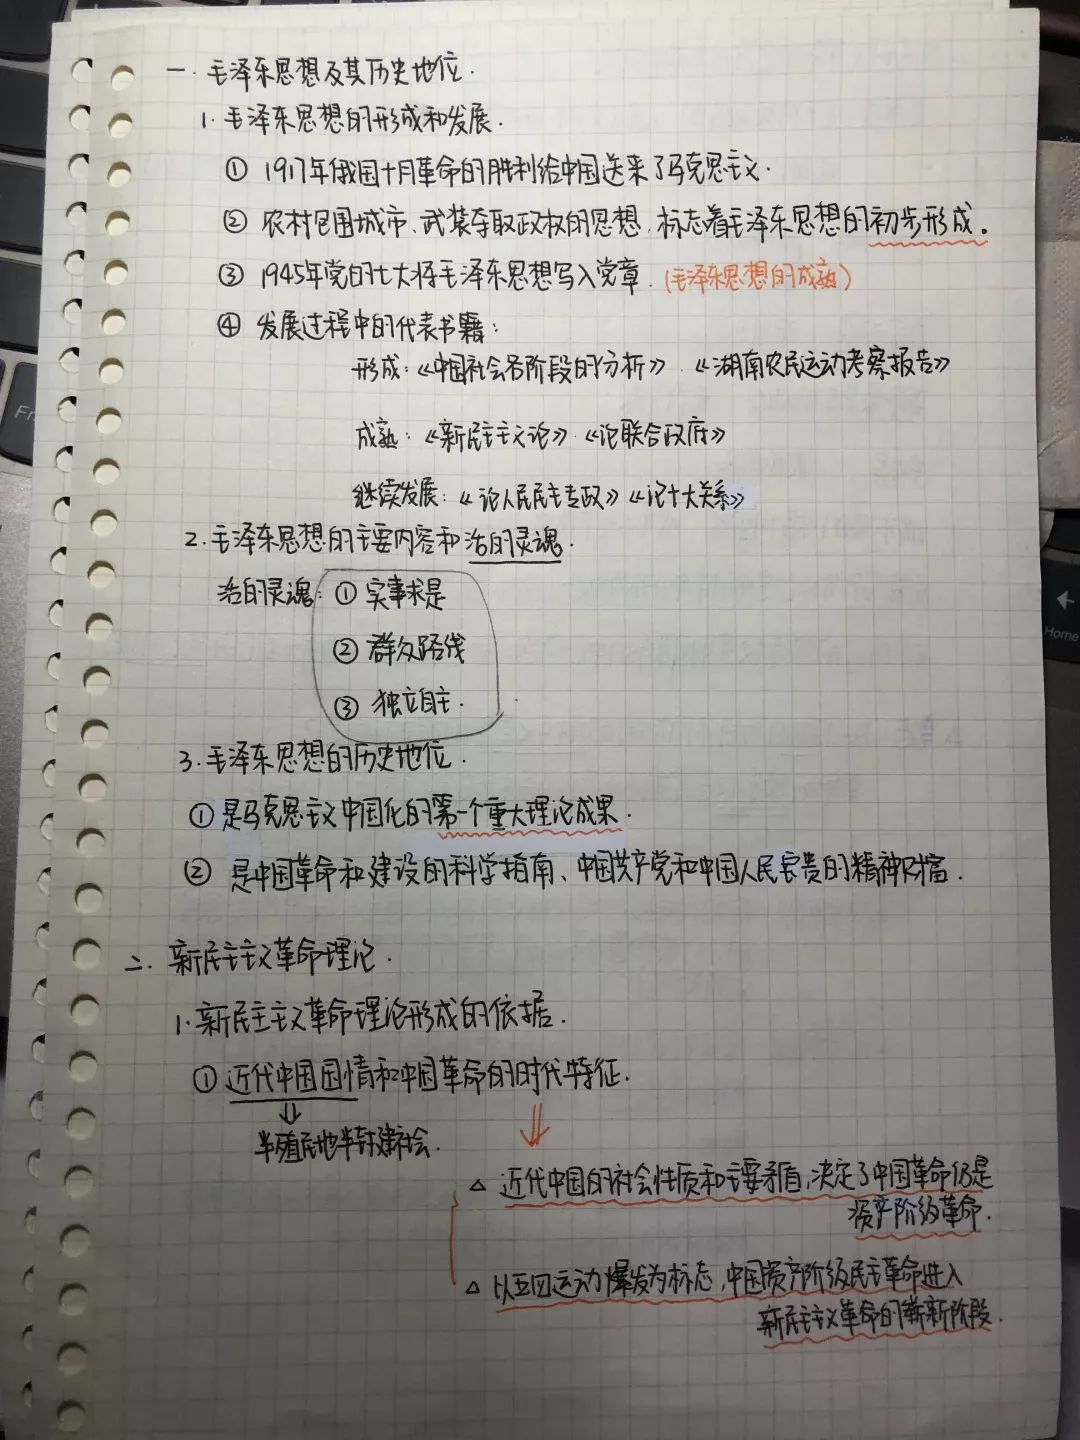 一. 毛泽东思想及其历史地位.
1. 毛泽东思想的形成和发展.
① 1917年俄国十月革命的胜利给中国送来了马克思主义.
② 农村包围城市、武装夺取政权的思想, 标志着毛泽东思想的初步形成。
③ 1945年党的七大将毛泽东思想写入党章. (毛泽东思想的成熟)
④ 发展过程中的代表书籍:
形成:《中国社会各阶段的分析》.《湖南农民运动考察报告》
成熟:《新民主主义论》《论联合政府》
继续发展:《论人民民主专政》《论十大关系》
2. 毛泽东思想的主要内容和活的灵魂.
活的灵魂: ① 实事求是
② 群众路线
③ 独立自主.
3. 毛泽东思想的历史地位.
① 是马克思主义中国化的第一个重大理论成果.
② 是中国革命和建设的科学指南、中国共产党和中国人民宝贵的精神财富.
二. 新民主主义革命理论.
1. 新民主主义革命理论形成的依据.
① 近代中国国情和中国革命的时代特征.
半殖民地半封建社会.
△ 近代中国的社会性质和主要矛盾,决定了中国革命仍是
资产阶级革命.
△ 以五四运动爆发为标志,中国资产阶级民主革命进入
新民主主义革命的崭新阶段.
Home